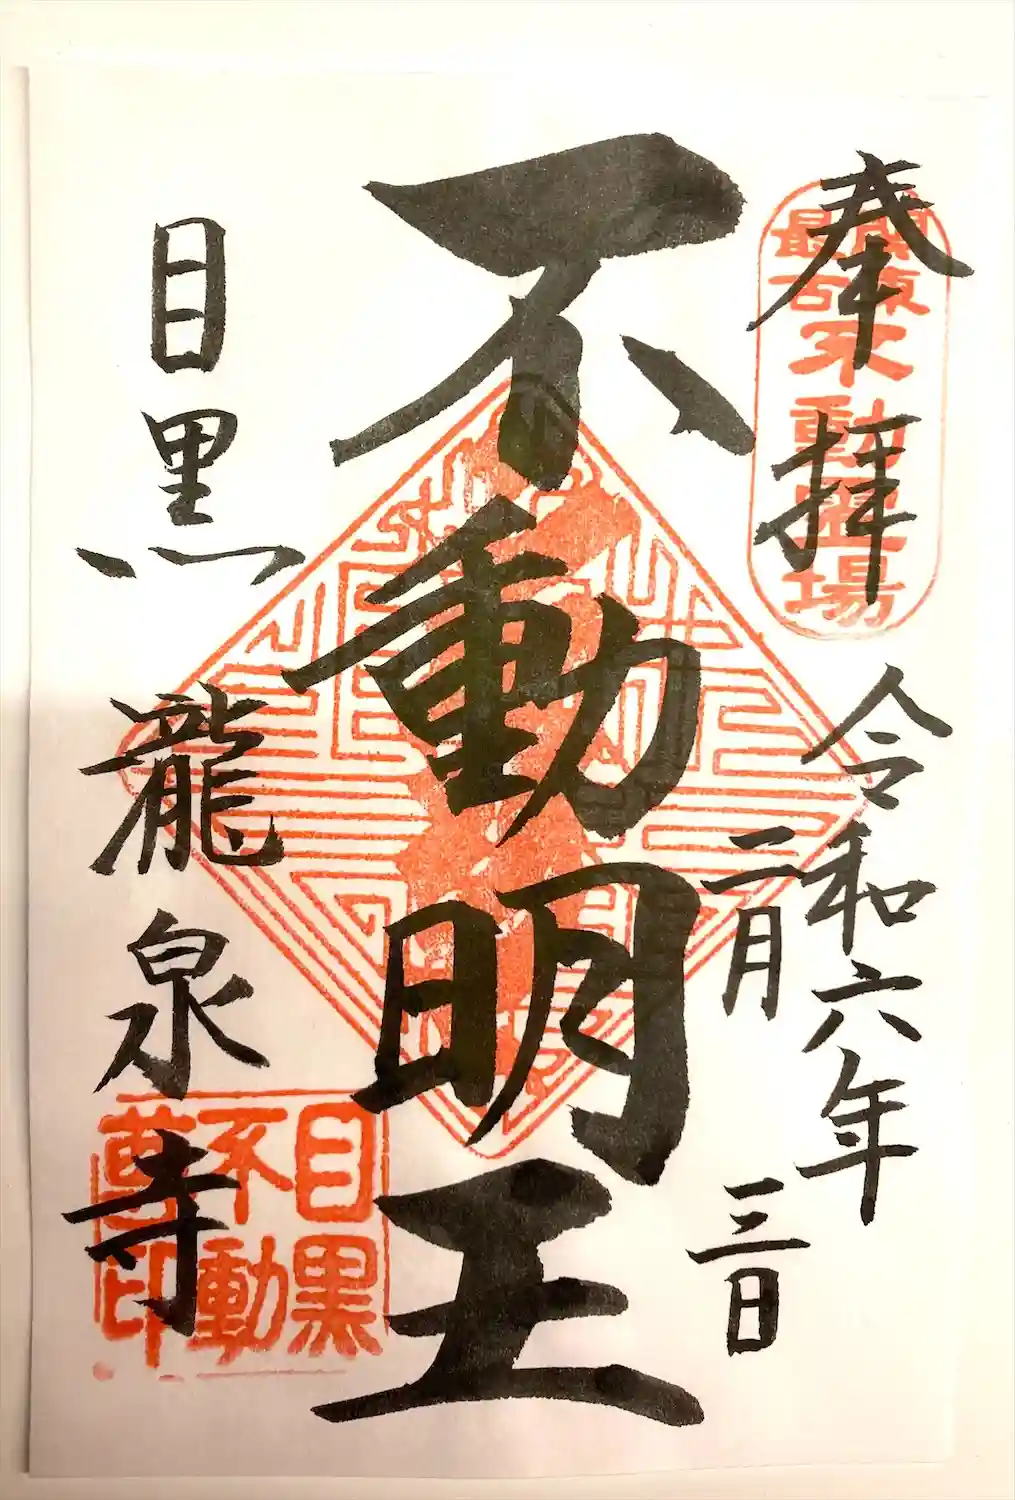 奉拝
関東
最古
不動霊場
令和六年
二月
三日
不動明王
目黒
龍泉寺
目黒
不動
尊印